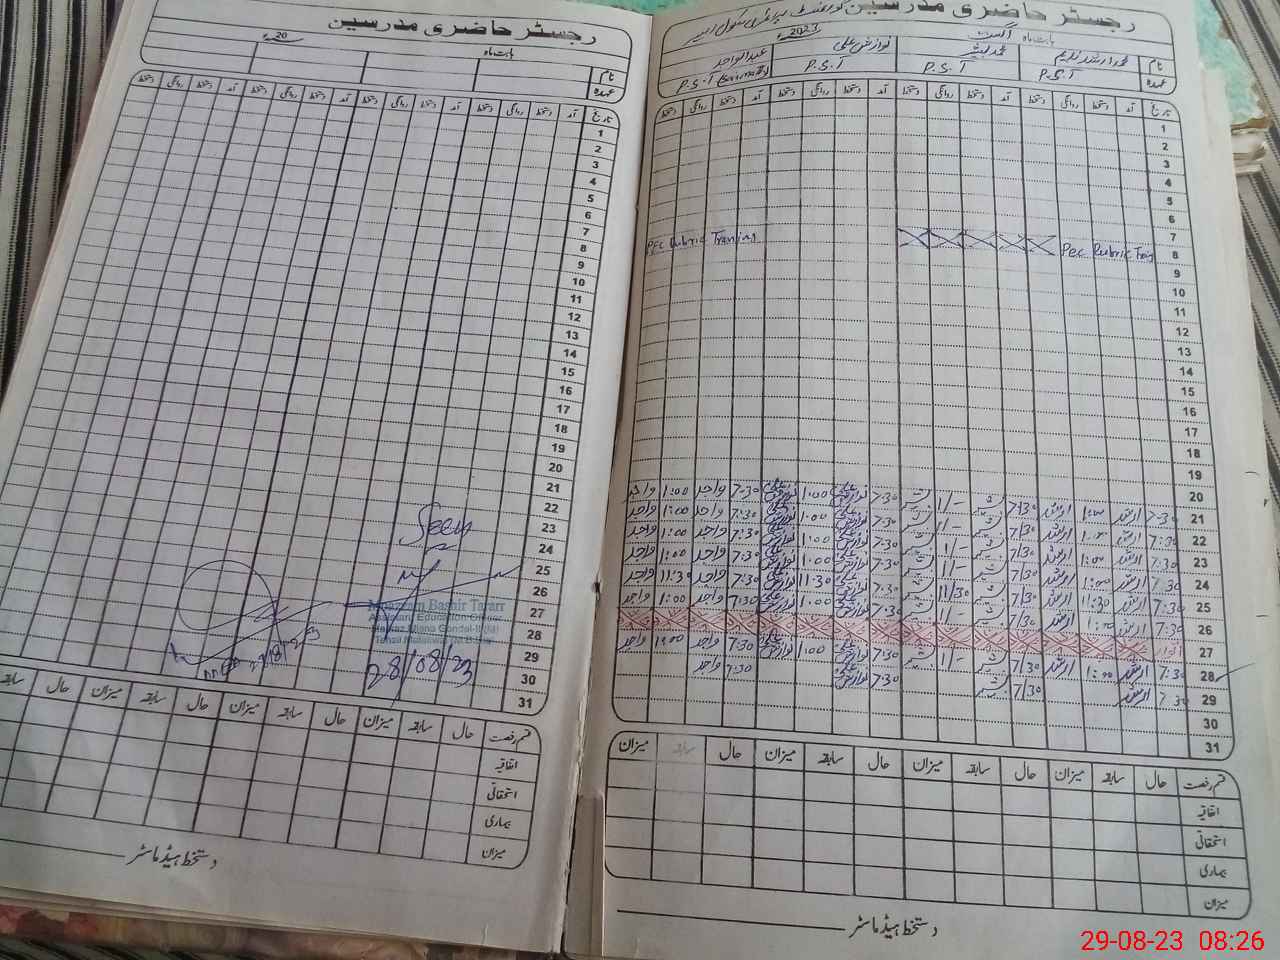 رجسٹر حاضری مدرسین گورنمنٹ پرائمری سکول
بابت ماہ اگست 2023ء
نام محمد ارشد ندیم محمد مبشر نوازش علی عبدالواحد
عہدہ P.S.T P.S.T P.S.T P.S.T
تاریخ آمد دستخط روانگی دستخط آمد دستخط روانگی دستخط آمد دستخط روانگی دستخط آمد دستخط روانگی دستخط
1
2
3
4
5
6
7
8 Pec Rubric Pec Rubric Training
9
10
11
12
13
14
15
16
17
18
19
20
21 7:30 ارشد 1:00 ارشد 7/30 مبشر 1/- مبشر 7:30 نوازش علی 1:00 نوازش علی 7:30 واحد 1:00 واحد
22 7:30 ارشد 1:00 ارشد 7/30 مبشر 1/- مبشر 7:30 نوازش علی 1:00 نوازش علی 7:30 واحد 1:00 واحد
23 7:30 ارشد 1:00 ارشد 7/30 مبشر 1/- مبشر 7:30 نوازش علی 1:00 نوازش علی 7:30 واحد 1:00 واحد
24 7:30 ارشد 1:00 ارشد 7/30 مبشر 1/- مبشر 7:30 نوازش علی 1:00 نوازش علی 7:30 واحد 1:00 واحد
25 7:30 ارشد 11:30 ارشد 7/30 مبشر 11/30 مبشر 7:30 نوازش علی 11:30 نوازش علی 7:30 واحد 11:30 واحد
26 7:30 ارشد 1:00 ارشد 7/30 مبشر 1/- مبشر 7:30 نوازش علی 1:00 نوازش علی 7:30 واحد 1:00 واحد
27
28 7:30 ارشد 1:00 ارشد 7/30 مبشر 1/- مبشر 7:30 نوازش علی 1:00 نوازش علی 7:30 واحد 1:00 واحد
29 7:30 ارشد 7/30 مبشر 7:30 نوازش 7:30 واحد
30
31
قسم رخصت حال سابقہ میزان حال سابقہ میزان حال سابقہ میزان حال سابقہ میزان
اتفاقیہ
استحقاقی
بیماری
میزان
دستخط ہیڈ ماسٹر
رجسٹر حاضری مدرسین
بابت ماہ 20ء
نام
عہدہ
تاریخ آمد دستخط روانگی دستخط آمد دستخط روانگی دستخط آمد دستخط روانگی دستخط آمد دستخط روانگی دستخط
1
2
3
4
5
6
7
8
9
10
11
12
13
14
15
16
17
18
19
20
21
22
23
24
25
26
27
28
29
30
31
Seen
Bashir Tararr
Assistant Education Officer
28/08/23
قسم رخصت حال سابقہ میزان حال سابقہ میزان حال سابقہ میزان حال سابقہ
اتفاقیہ
استحقاقی
بیماری
میزان
دستخط ہیڈ ماسٹر
29-08-23 08:26